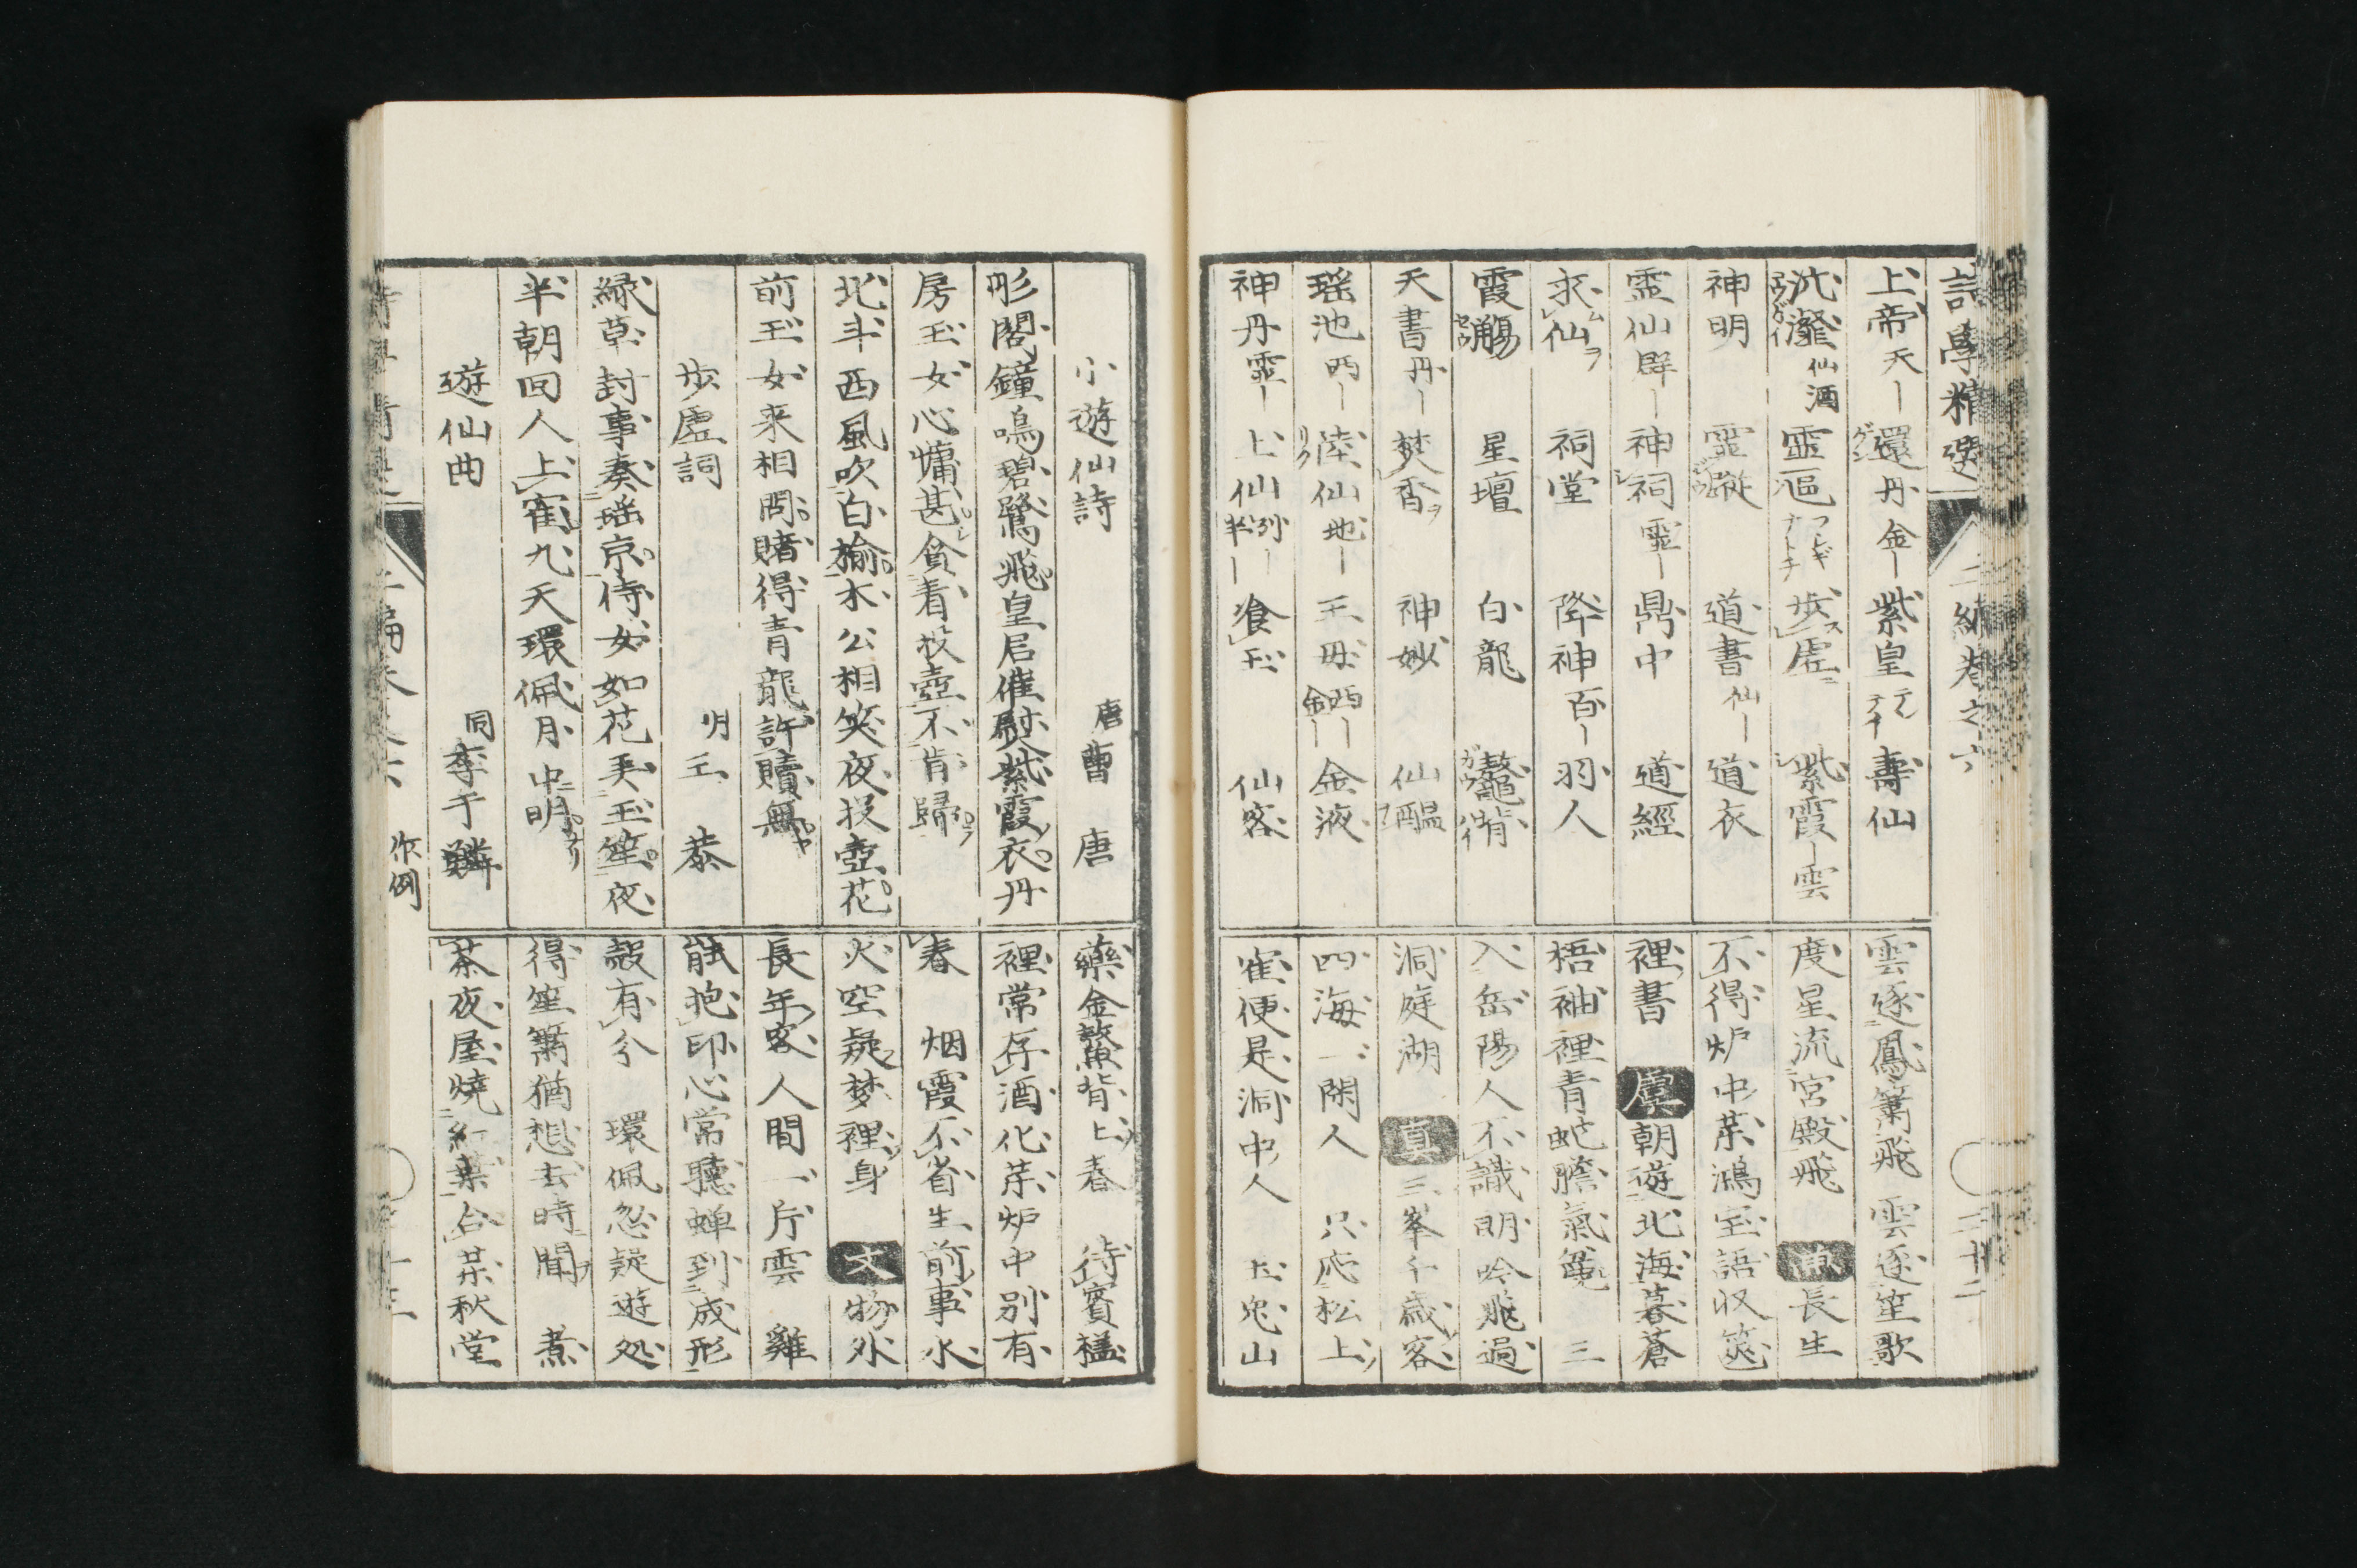 詩學精選 二編卷之六
上帝 天｜ 還丹 金｜ 紫皇 テンテイ 壽仙
沆瀣 仙酒 靈區 步虛 紫霞 ｜雲
神明 靈蹤 道書 仙｜ 道衣
靈仙 群｜ 神祠 靈｜ 鼎中 道經
求仙 祠堂 降神 百｜ 羽人
霞觴 星壇 白龍 鼇背
天書 丹｜ 焚香 神妙 仙醞
瑤池 西｜ 陸仙 地｜ 王母 西｜金｜ 金液
神丹 靈｜ 上仙 列｜ 飡玉 仙客
雲逐鳳簫飛 雲逐笙歌
度星流宮殿飛 東 長生
不得炉中菜鴻宝語収篋
裡書 虞 朝遊北海暮蒼
梧袖裡青蛇膽氣麄 三
入岳陽人不識朗吟飛過
洞庭湖 眞 三峯千歳客
四海一閑人 只応松上
隺便是洞中人 玉兎山
小遊仙詩 唐 曹唐
彤閣鐘鳴碧鷺飛皇君催熨紫霞衣丹
房玉女心慵甚貪看投壺不肯歸
北斗西風吹白楡木公相笑夜投壺花
前玉女来相問賭得青龍許贖無
步虛詞 明 王恭
緑草封事奏瑤京侍女如花弄玉笙夜
半朝回人上隺九天環佩月中明
遊仙曲 同 李于鱗
藥金鰲背上春 待賓榼
裡常存酒化菜炉中別有
春 烟霞不省生前事水
火空疑梦裡身 文 物外
長年客人間一片雲 雞
能抱卬心常聽蝉到成形
殼有兮 環佩忽疑遊処
得笙簫猶想去時聞 煮
茶夜屋燒紅葉合菜秋堂
作例